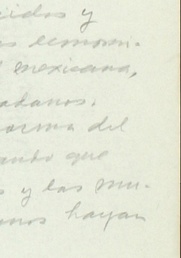 cidos y
es econom-
mexicana,
adanos.
forma del
ando que
s y las mu-
anos hayan